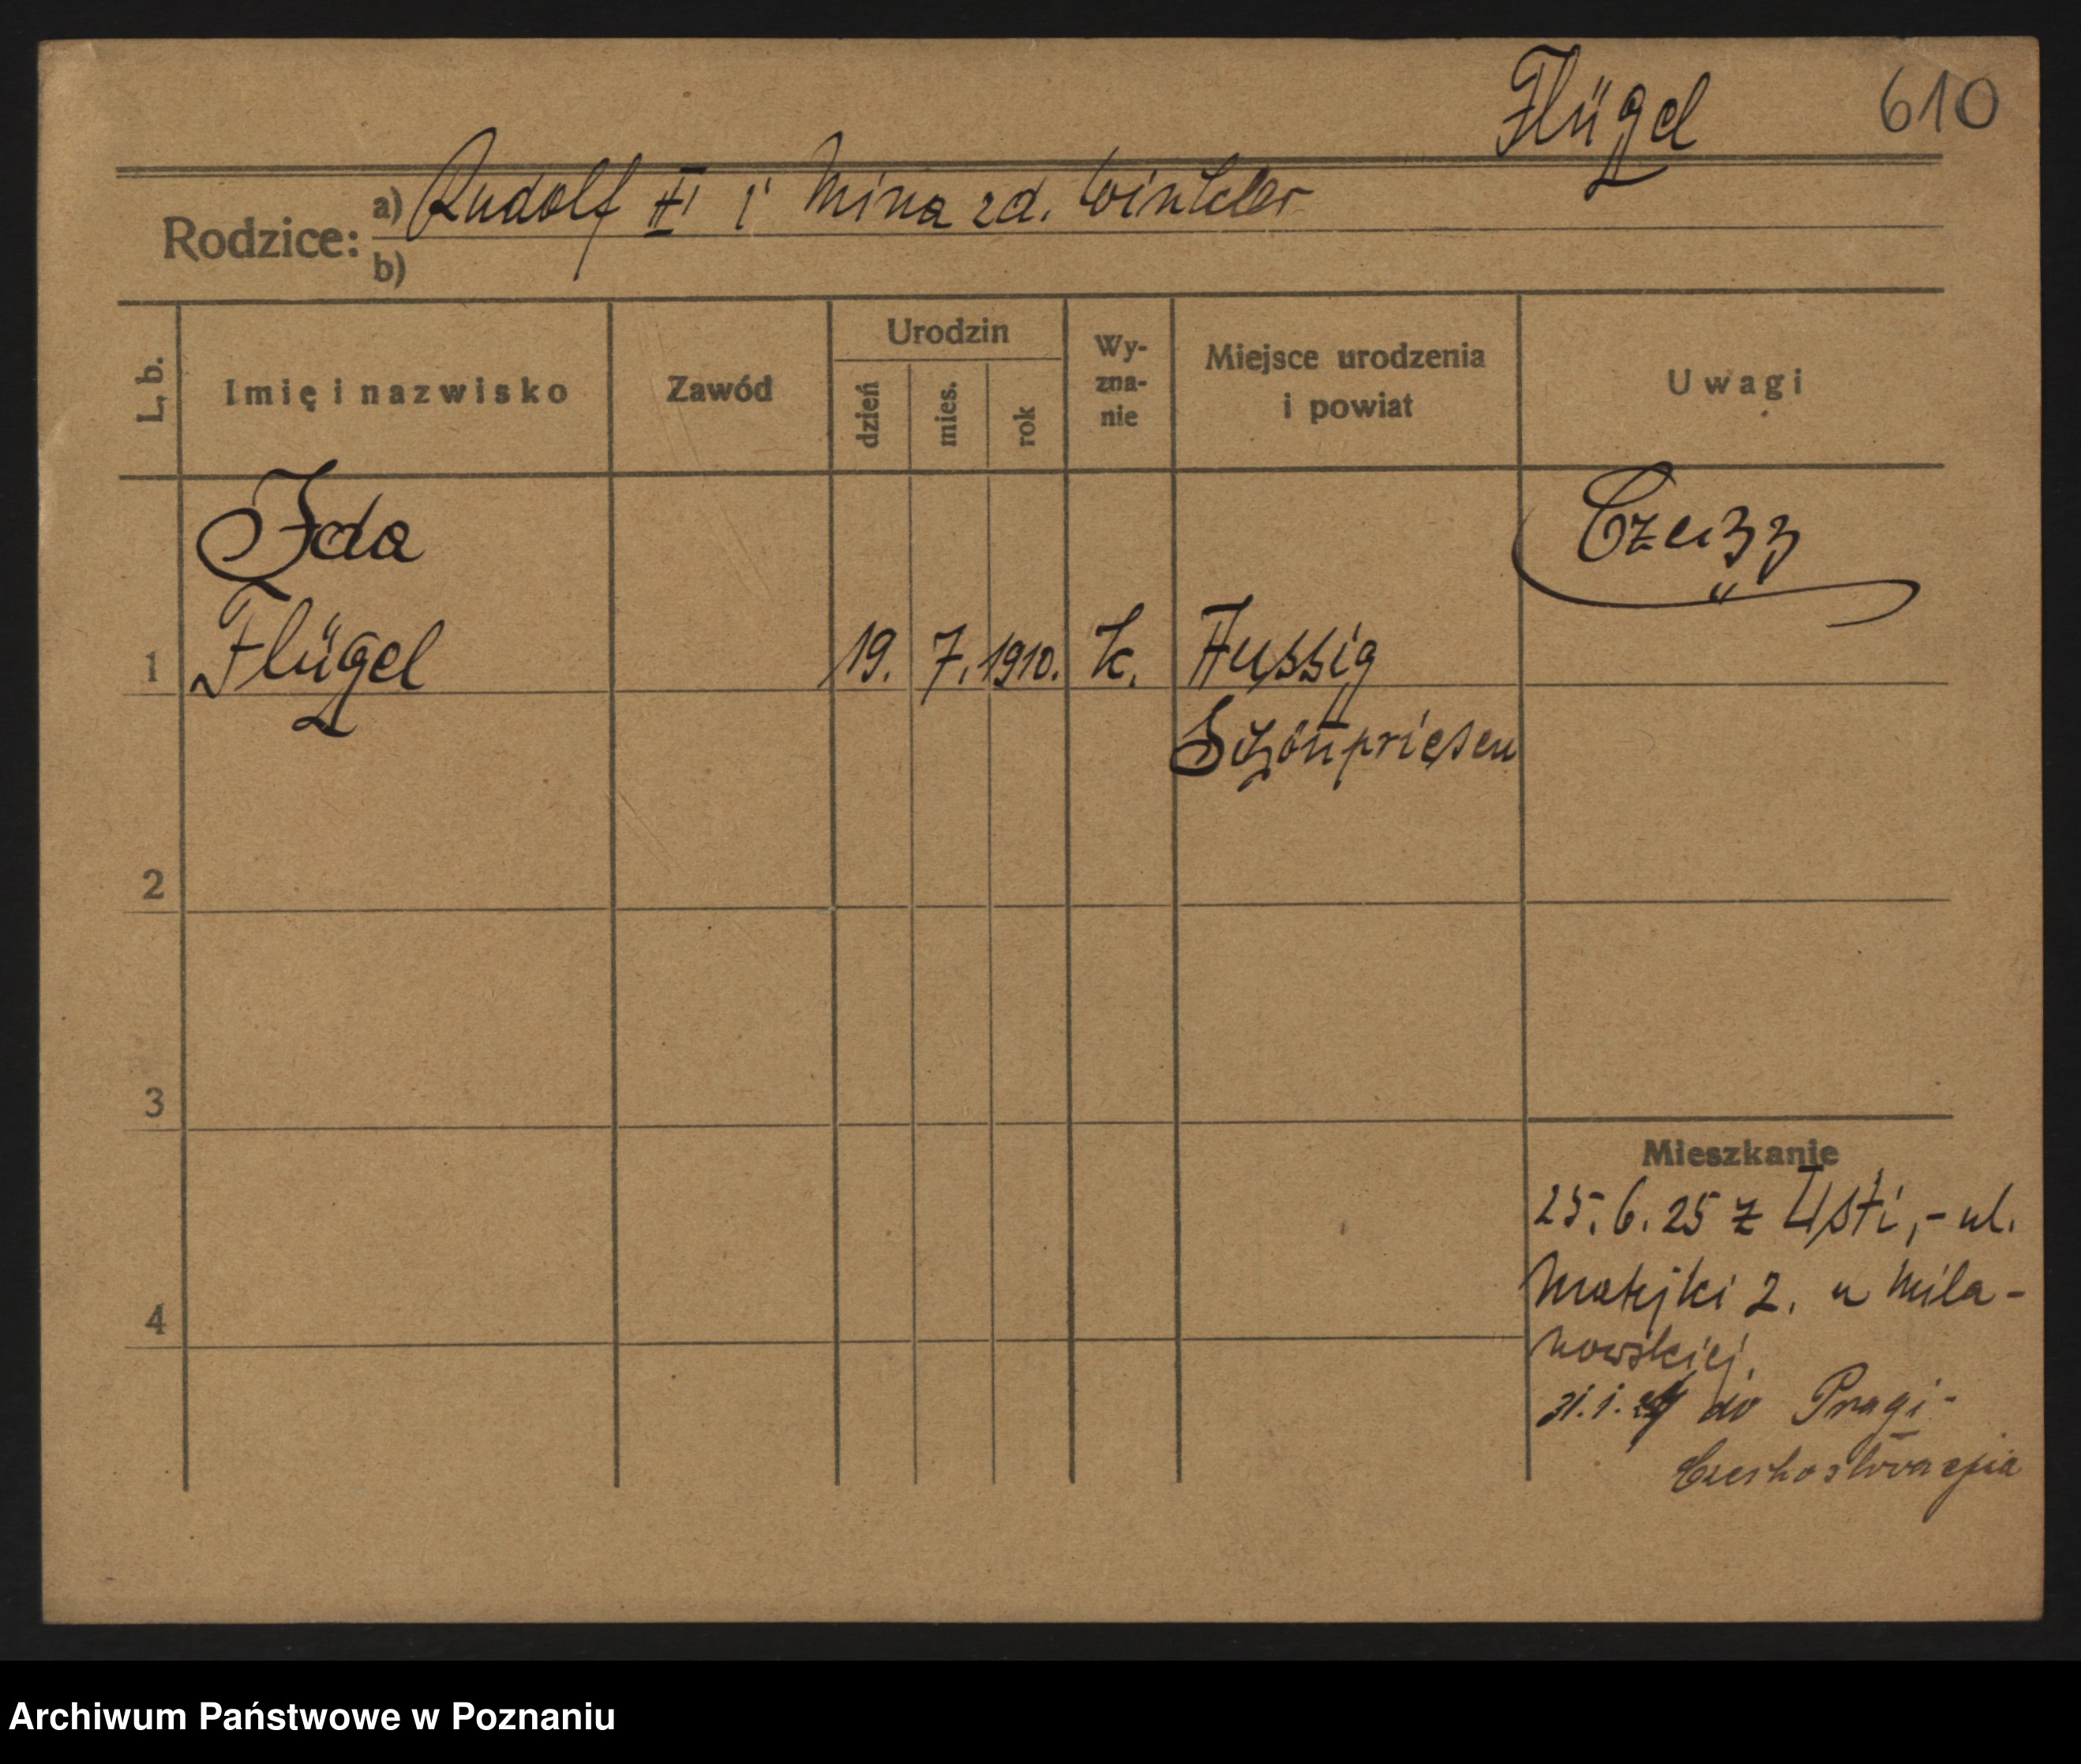 Flügel 610
Rodzice: a) Rudolf i Mina zd. Winkler
b)
L. b. Imię i nazwisko Zawód Urodzin dzień mies. rok Wy-zna-nie Miejsce urodzenia i powiat Uwagi
Ida
1 Flügel 19. 7. 1910. k. Aussig
Schönpriesen
2
3
Mieszkanie
25. 6. 25 z Usti, - ul.
Matejki 2. u Mila-
4 nowskiej.
31. 1. do Pragi -
Czechosłowacja
Archiwum Państwowe w Poznaniu